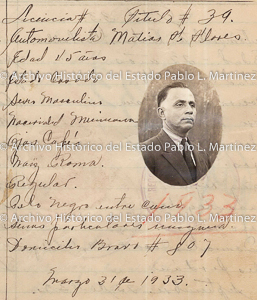 Licencia # Título # 39.
Automovilista Matías P. Flores.
Edad 45 años
Archivo Histórico del Estado Pablo L. Martínez
Sexo Masculino
Ojos Cafés
Archivo Histórico del Estado Pablo L. Martínez
Nariz Roma.
Regular.
Pelo Negro entre cano
1933
Archivo Histórico del Estado Pablo L. Martínez
Señas particulares ninguna.
Domicilio Bravo # 807
Marzo 31 de 1933.